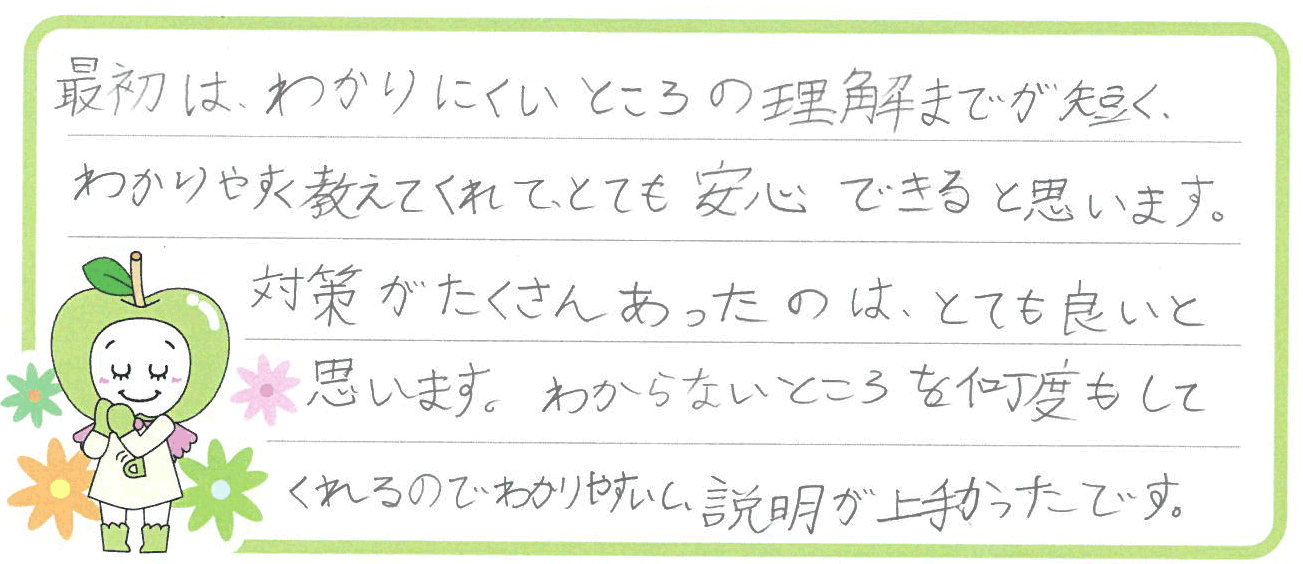 最初は、わかりにくいところの理解までが短く、
わかりやすく教えてくれて、とても安心できると思います。
対策がたくさんあったのは、とても良いと
思います。わからないところを何度もして
くれるのでわかりやすいし、説明が上手かったです。